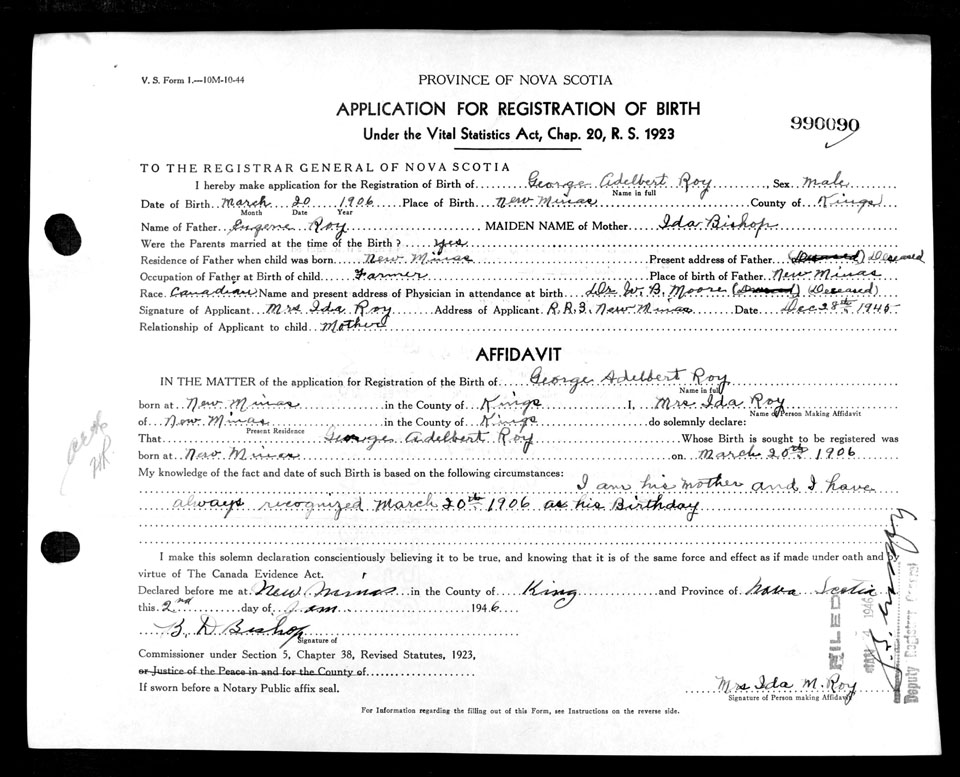 V. S. Form 1.—10M-10-44
PROVINCE OF NOVA SCOTIA
APPLICATION FOR REGISTRATION OF BIRTH
Under the Vital Statistics Act, Chap. 20, R. S. 1923
990090
TO THE REGISTRAR GENERAL OF NOVA SCOTIA
I hereby make application for the Registration of Birth of George Adelbert Roy, Sex male
Name in full
Date of Birth March 20 1906 Place of Birth New Minas County of Kings
Month Date Year
Name of Father Eugene Roy MAIDEN NAME of Mother Ida Bishop
Were the Parents married at the time of the Birth? yes
Residence of Father when child was born New Minas Present address of Father (Deceased) Deceased
Occupation of Father at Birth of child Farmer Place of birth of Father New Minas
Race Canadian Name and present address of Physician in attendance at birth Dr W. B. Moore (Deceased) (Deceased)
Signature of Applicant Mrs Ida Roy Address of Applicant R.R.3. New Minas Date Dec 28th 1945
Relationship of Applicant to child Mother
AFFIDAVIT
IN THE MATTER of the application for Registration of the Birth of George Adelbert Roy
Name in full
born at New Minas in the County of Kings I, Mrs Ida Roy
Name of Person Making Affidavit
of New Minas in the County of Kings do solemnly declare:
Present Residence
That George Adelbert Roy Whose Birth is sought to be registered was
born at New Minas on March 20th 1906
My knowledge of the fact and date of such Birth is based on the following circumstances:
I am his mother and I have
always recognized March 20th 1906 as his Birthday
I make this solemn declaration conscientiously believing it to be true, and knowing that it is of the same force and effect as if made under oath and by
virtue of The Canada Evidence Act.
Declared before me at New Minas in the County of King and Province of Nova Scotia
this 2nd day of Jan 1946
B. D Bishop
Signature of
Commissioner under Section 5, Chapter 38, Revised Statutes, 1923,
or Justice of the Peace in and for the County of
If sworn before a Notary Public affix seal.
Mrs Ida M. Roy
Signature of Person making Affidavit
For Information regarding the filling out of this Form, see Instructions on the reverse side.
FILED
JAN 4 1946
Deputy Registrar General